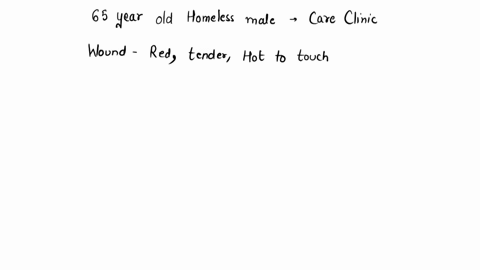 65 year old Homeless male → Care Clinic
Wound - Red, tender, Hot to touch